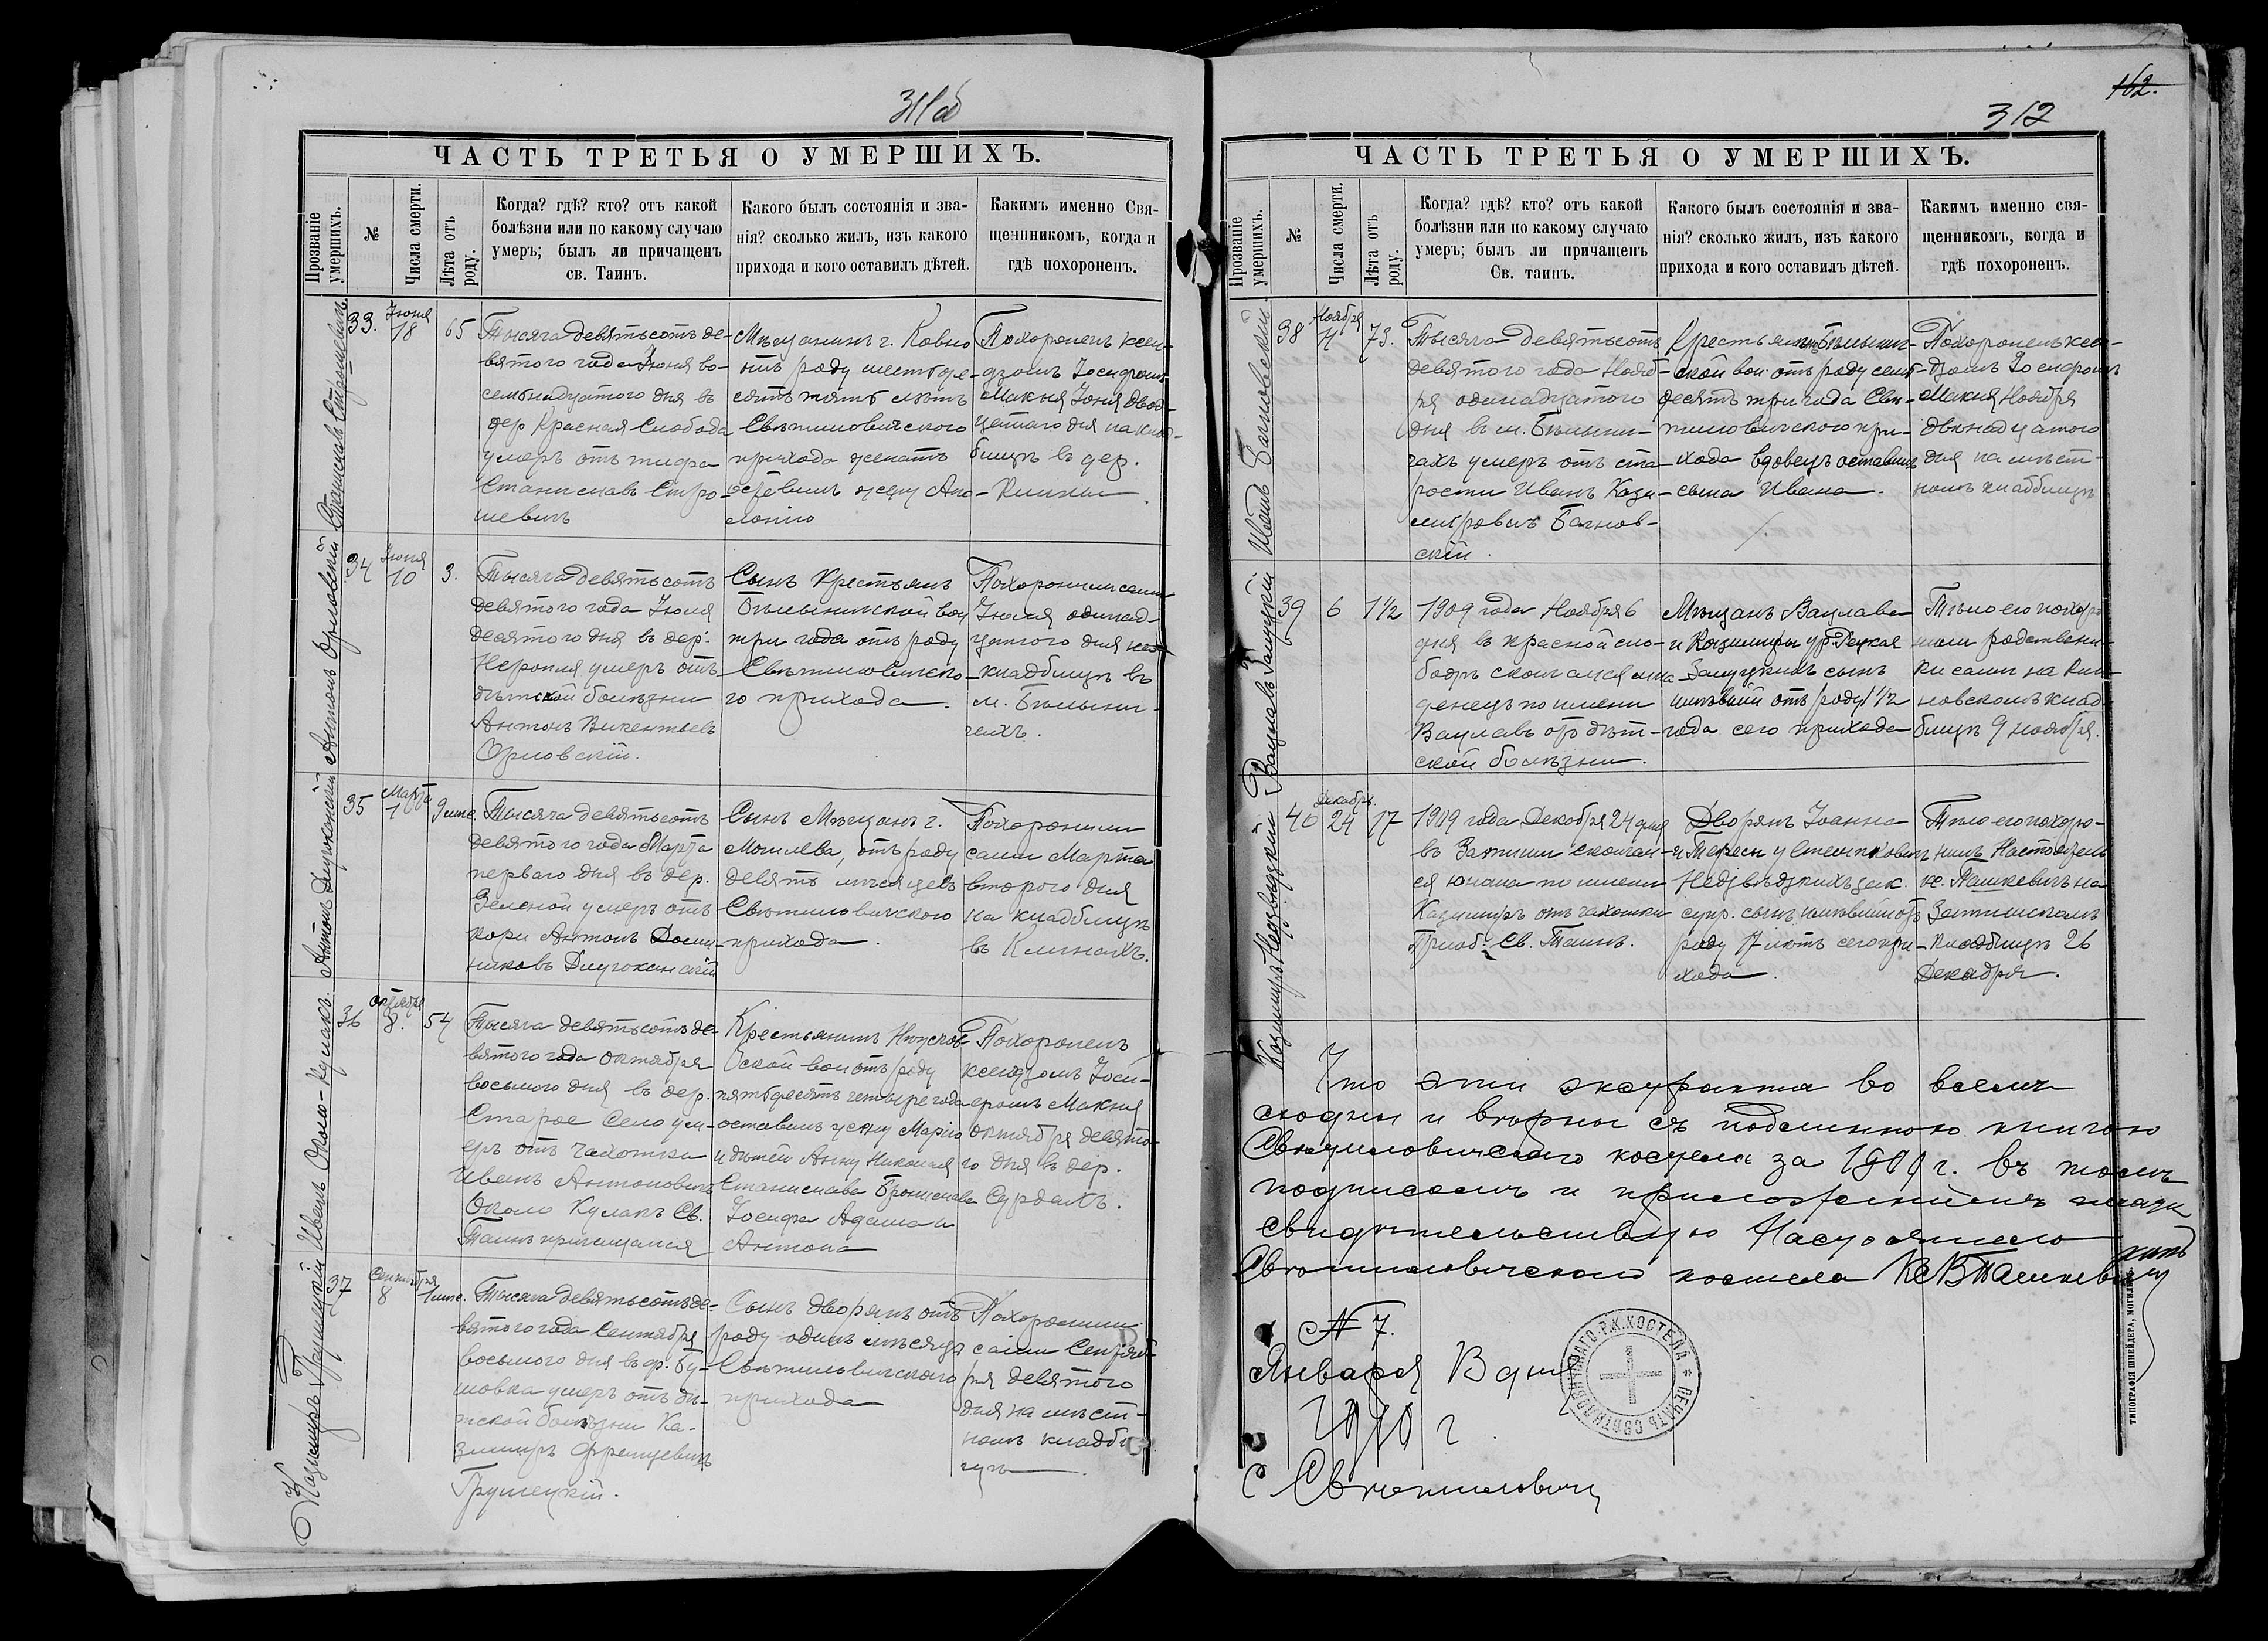 311 об
ЧАСТЬ ТРЕТЬЯ О УМЕРШИХЪ.
Прозваніе умершихъ.
№
Числа смерти.
Лѣта отъ роду.
Когда? гдѣ? кто? отъ какой
болѣзни или по какому случаю
умеръ; былъ ли причащенъ
св. Таинъ.
Какого былъ состоянія и зва-
нія? сколько жилъ, изъ какого
прихода и кого оставилъ дѣтей.
Каким​ъ именно Свя-
щенникомъ, когда и
гдѣ похороненъ.
33.
Іюня
18
65
Тысяча девятьсотъ де-
вятого года Іюня во-
семнадцатого дня въ
дер Красная Слобода
умеръ отъ тифа
Станиславъ Стро-
шевичъ
Мѣщанинъ г. Ковно
отъ роду шестьде-
сятъ пять лѣтъ
Свѣтиловичского
прихода женатъ
оставилъ жену Апо-
лонію
Похороненъ ксен-
дзомъ Іосифомъ
Макня Іюня двад-
цатаго дня на клад-
бищѣ въ дер.
Клины.
Антонъ Орловскій
34
Іюля
10
3.
Тысяча девятьсотъ
девятого года Іюля
десятого дня въ дер.
Неропля умеръ отъ
дѣтской болѣзни
Антонъ Викентьевъ
Орловскій.
Сынъ Крестьянъ
Бѣлыничской вол
три года отъ роду
Свѣтиловичско-
го прихода.
Похоронили сами
Іюля одинад-
цатого дня на
кладбищѣ въ
м. Бѣлыни-
чахъ.
35
Марта
1
9 мѣс.
Тысяча девятьсотъ
девятого года Марта
перваго дня въ дер.
Зеленой умеръ отъ
кори Антонъ Доми-
никовъ Длугоканскій
Сынъ Мѣщанъ г.
Могилева, отъ роду
девять мѣсяцевъ
Свѣтиловичского
прихода.
Похоронили
сами Марта
второго дня
на кладбищѣ
въ Клинахъ.
Иванъ Около-Кулакъ.
36
Октября
8.
54
Тысяча девятьсотъ де-
вятого года Октября
восьмого дня въ дер.
Старое Село ум-
еръ отъ чахотки
Иванъ Антоновичъ
Около Кулакъ Св.
Таинъ причащался
Крестьянинъ
ской вол отъ роду
пятьдесятъ четыре года
оставилъ жену Марію
и дѣтей Анну Николая
Станислава Бронислава
Іосифа Адама и
Антона
Похороненъ
ксендзомъ Іоси-
фомъ Макня
Октября девято-
го дня въ дер.
Сурдахъ.
Казимиръ Грушецкій
37
Сентября
8
1 мѣс.
Тысяча девятьсотъ де-
вятого года Сентября
восьмого дня въ ф. Бу-
шовка умеръ отъ дѣ-
тской болѣзни Ка-
зимиръ Францевичъ
Грушецкій.
Сынъ дворянъ отъ
роду одинъ мѣсяцъ
Свѣтиловичского
прихода
Похоронили
сами Сентяб-
ря девятого
дня на мѣст-
номъ кладби-
щѣ.
162.
312
ЧАСТЬ ТРЕТЬЯ О УМЕРШИХЪ.
Прозваніе умершихъ.
№
Числа смерти.
Лѣта отъ роду.
Когда? гдѣ? кто? отъ какой
болѣзни или по какому случаю
умеръ; былъ ли причащенъ
Св. таинъ.
Какого былъ состоянія и зва-
нія? сколько жилъ, изъ какого
прихода и кого оставилъ дѣтей.
Какимъ именно свя-
щенникомъ, когда и
гдѣ похороненъ.
38
Ноября
11
73.
Тысяча девятьсотъ
девятого года Нояб-
ря одинадцатого
дня въ м. Бѣлыни-
чахъ умеръ отъ ста-
рости Иванъ Кази-
мировичъ Багнов-
скій.
Крестьянинъ Бѣлынич-
ской вол отъ роду семь-
десятъ три года Свѣ-
тиловичского при-
хода вдовецъ оставилъ
сына Ивана.
Похороненъ ксен-
дзомъ Іосифомъ
Макня Ноября
двѣнадцатого
дня на мѣст-
номъ кладбищѣ
39
6
1 1/2
1909 года Ноября 6
дня въ Красной сло-
бодѣ скончался мла-
денецъ по имени
Вацлавъ отъ дѣт-
ской болѣзни.
Мѣщанъ Вацлава
и Казимиры ур. Рецкая
сынъ
имѣвшій отъ роду 1 1/2
года сего прихода
Тѣло его похоро
нили родствени-
ки сами на Кли-
новскомъ клад-
бищѣ 9 ноября.
Казимиръ Недзвѣдзкій
40
Декабря.
24
17
1909 года Декабря 24 дня
въ Затиши скончал-
ся юноша по имени
Казимиръ отъ чахотки
Приоб. Св. Таинъ.
Дворянъ Іоанна
и Терезы у Стемпковичъ
Недзвѣдзкихъ зак.
супр. сынъ имѣвшій отъ
роду 17 лѣтъ сего при-
хода.
Тѣло его похоро-
нилъ Настоятель
кс. Пашкевичъ на
Затишскомъ
кладбищѣ 26
Декабря.
Что эти экстракта во всемъ
сходны и вѣрны съ подлинною книгою
Свѣтиловичского костела за 1909 г. въ томъ
подписомъ и приложеніемъ печати
свидѣтельствую Настоятель
Свѣтиловичского костела Кс В Пашкевичъ
№ 7.
Января 8 дня
1910 г.
С Свѣтиловичи
ПЕЧАТЬ СВѢТИЛОВИЧСКАГО Р. К. КОСТЕЛА
ТИПОГРАФІЯ ШНЕЙДЕРА, МОГИЛЕВЪ.